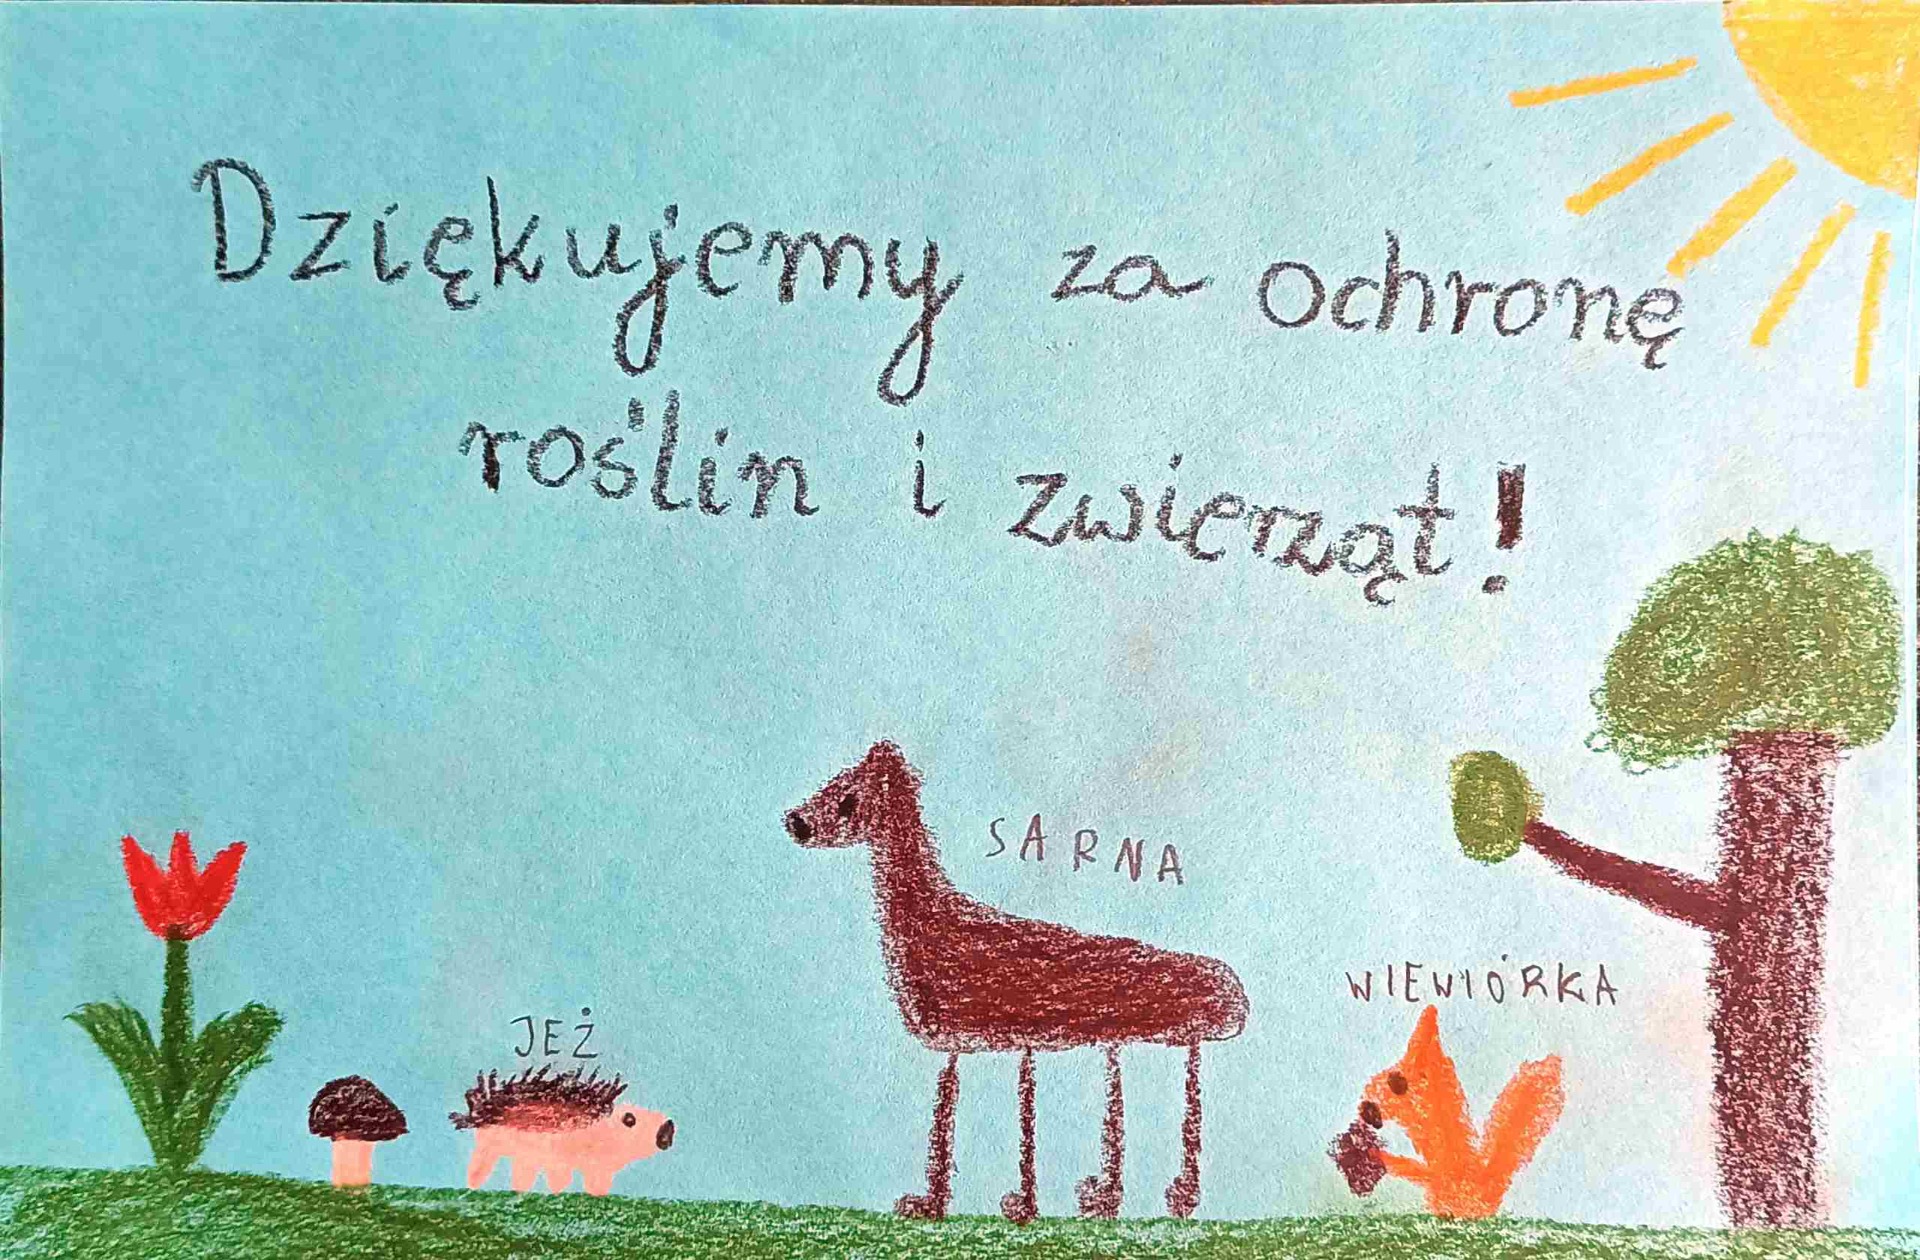 Dziękujemy za ochronę
roślin i zwierząt!
SARNA
WIEWIÓRKA
JEŻ